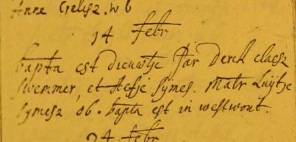 Anne Gelisz. w b
14 febr
bapta est dieuwtje Par Derck claesz
Swemmer, et Aefje Symes. Matr Luijtje
Symesz ob. bapta est in westwout.
24 febr